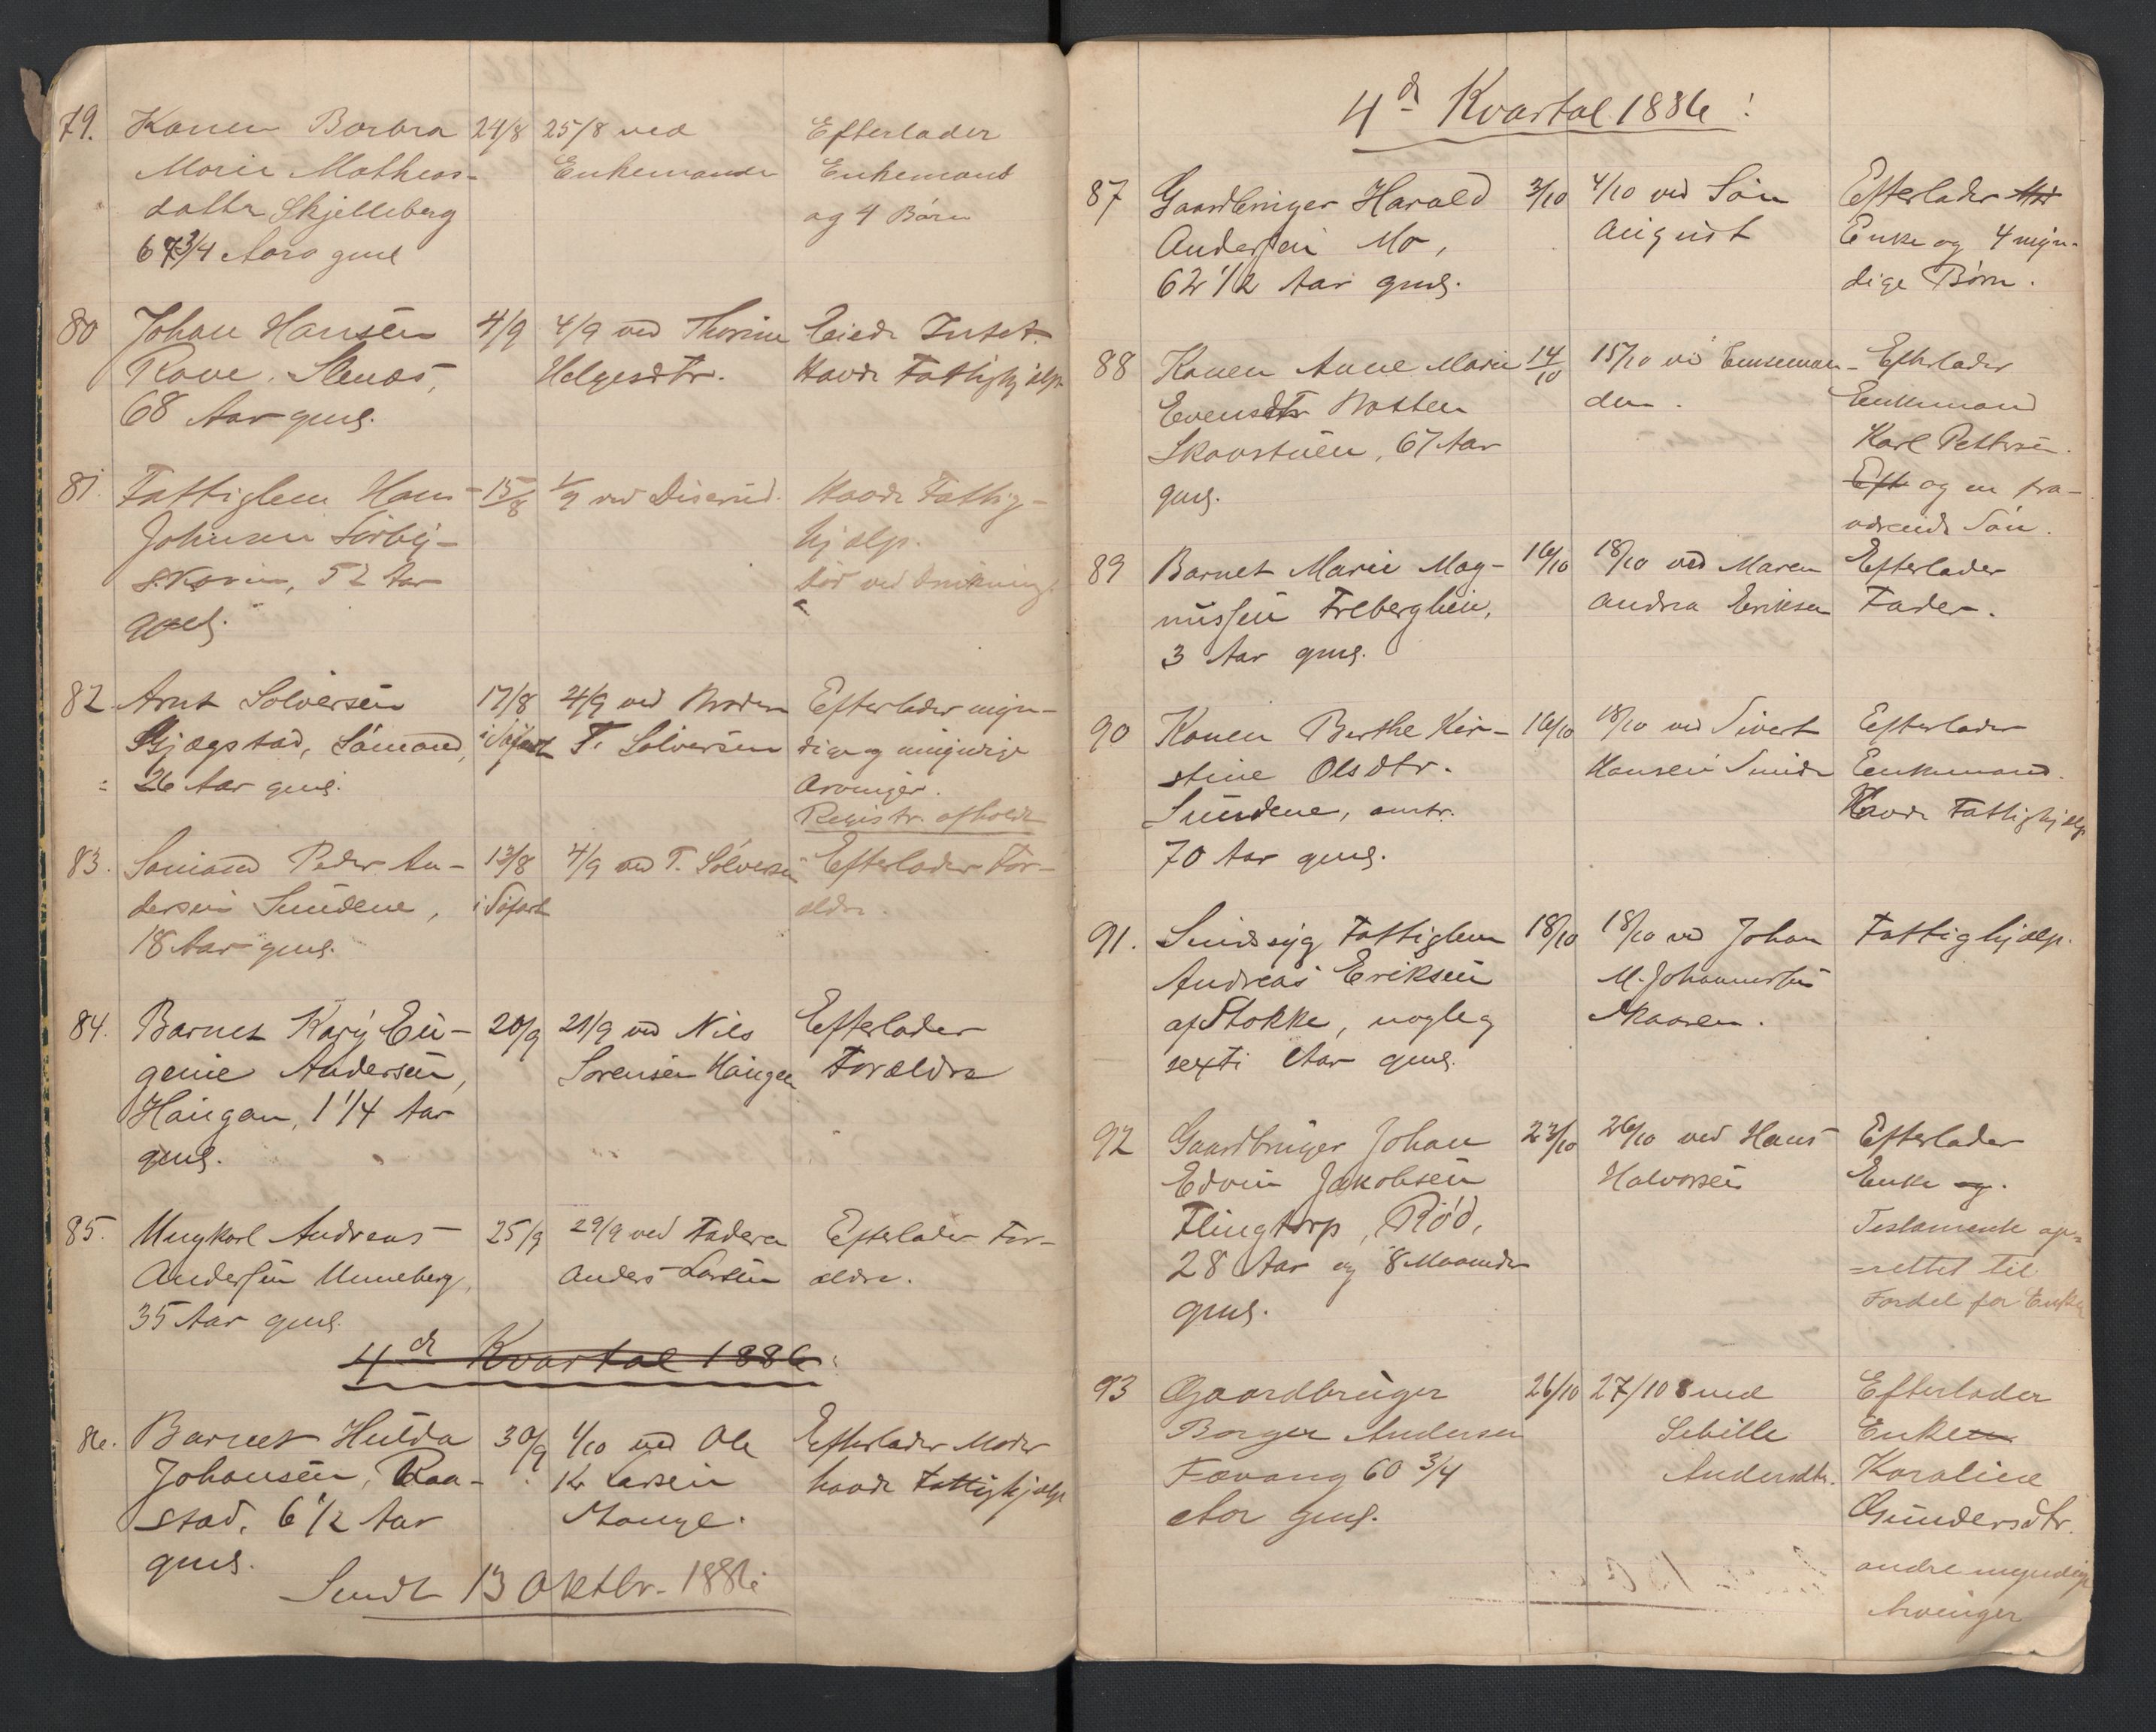 79. Konen Barbra 24/8 25/8 ved Efterlader
Marie Mathias- Enkemanden Enkemand
datter Skjelleberg og 4 Børn
67 3/4 Aars gml
80 Johan Hansen 4/9 4/9 ved Thorine Eiede Intet.
Rove, Stenaas, Helgesdtr. Havde Fattighjælp
68 Aar gml.
81. Fattiglem Hans 15/8 1/9 ved Diserud. Havde Fattig-
Johnsen Sörby- hjælp.
skoven, 52 Aar död ved drukning.
gml.
82. Arnt Sölversen 17/8 4/9 ved Broder Efterlader myn-
Gjægstad, Sömand, i Söfart T. Solversen dige og umyndige
26 Aar gml. Arvinger.
Registr. afholdt
83. Sömand Peder An- 13/8 4/9 ved T. Sölversen Efterlader For-
dersen Sundene, i Söfart ældre.
18 Aar gml.
84. Barnet Karÿ Eu- 20/9 21/9 ved Nils Efterlader
genie Andersen, Sorensen Haugen Forældre
Haugan, 1 1/4 Aar
gml.
85. Ungkarl Andreas 25/9 29/9 ved Faderen Efterlader For-
Andersen Unneberg, Anders Larsen ældre.
35 Aar gml.
4de Kvartal 1886:
86. Barnet Hulda 30/9 1/10 ved Ole Efterlader Moder
Johansen, Raa- Kr Larsen havde Fattighjælp
stad, 6 1/2 Aar Mauge.
gml.
Sendt 13 Oktbr. 1886
4de Kvartal 1886!
87 Gaardbruger Harald 3/10 4/10 ved Sön Efterlader
Andersen Mo, August Enke og 4 myn-
62 1/2 Aar gml. dige Börn.
88 Konen Anne Marie 14/10 15/10 ved Enkeman- Efterlader
Evensdtr Botten den. Enkemand
Skovstuen, 67 Aar Karl Pettersen.
gml. Eft og en fra-
værende Sön.
89 Barnet Marie Mag- 16/10 18/10 ved Maren Efterlader
nussen Freberghein, Andrea Eriksen Fader.
3 Aar gml.
90 Konen Berthe Kir- 16/10 18/10 ved Sivert Efterlader
stine Olsdtr. Hansen Sunde Enkemand.
Sundene, omtr. Havde Fattighjælp
70 Aar gml.
91. Sindssyg Fattiglem 18/10 18/10 ved Johan Fattighjælp.
Andreas Eriksen M. Johannesen
af Stokke, nogle og Skaaren.
sexti Aar gml.
92 Gaardbruger Johan 23/10 26/10 ved Hans Efterlader
Edvin Jakobsen Halvorsen Enke og.
Flingtorp, Röd, Testamente op-
28 Aar og 8 Maaneder =rettet til
gml. Fordel for Enken
93 Gaardbruger 26/10 27/10 8 ved Efterlader
Borger Andersen Sibille Enken
Fævang 60 3/4 Andersdtr. Karoline
Aar gml. Gundersdtr.
andre myndige
Arvinger